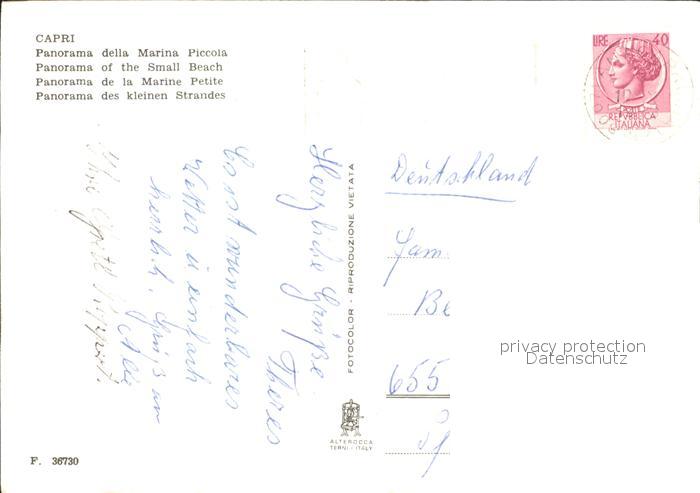 CAPRI
Panorama della Marina Piccola
Panorama of the Small Beach
Panorama de la Marine Petite
Panorama des kleinen Strandes
LIRE 40
REPVBBLICA
ITALIANA
Herzliche Grüße
Es ist wunderbares
Wetter u einfach
herrlich. Gruß an
Alle
FOTOCOLOR - RIPRODUZIONE VIETATA
Deutschland
Fam
Be
655
privacy protection
Datenschutz
ALTEROCCA
TERNI - ITALY
F. 36730